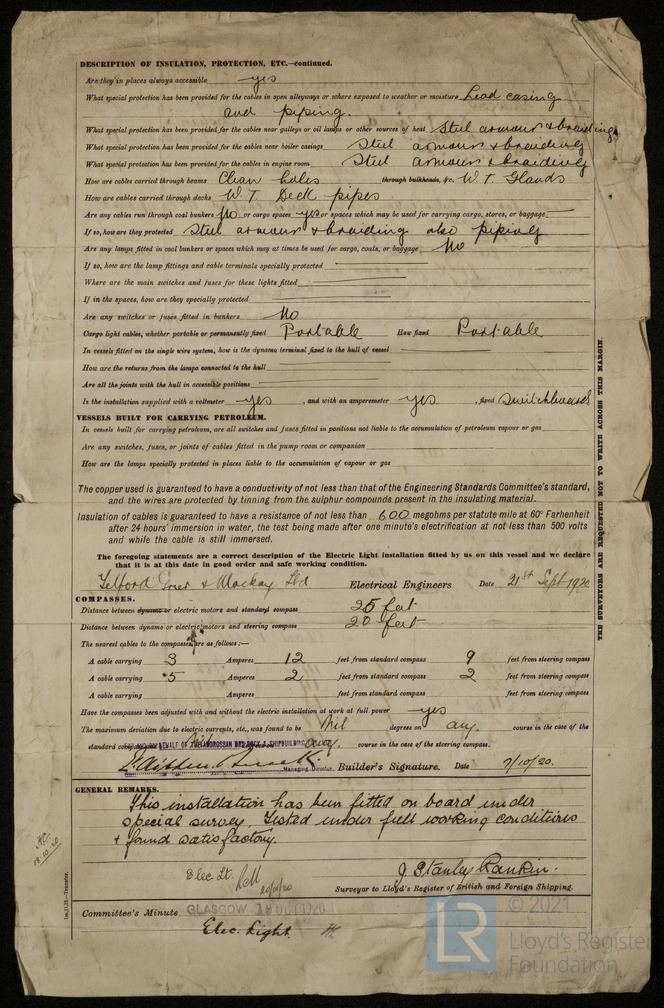 DESCRIPTION OF INSULATION, PROTECTION, ETC.—continued.
Are they in places always accessible yes
What special protection has been provided for the cables in open alleyways or where exposed to weather or moisture Lead casing
and piping.
What special protection has been provided for the cables near galleys or oil lamps or other sources of heat Steel armour & braiding
What special protection has been provided for the cables near boiler casings Steel armour & braiding
What special protection has been provided for the cables in engine room Steel armour & braiding
How are cables carried through beams Clean holes through bulkheads, &c. W.T. Glands
How are cables carried through decks W.T. Deck pipes
Are any cables run through coal bunkers No or cargo spaces yes or spaces which may be used for carrying cargo, stores, or baggage
If so, how are they protected Steel armour & braiding also piping
Are any lamps fitted in coal bunkers or spaces which may at times be used for cargo, coals, or baggage No
If so, how are the lamp fittings and cable terminals specially protected
Where are the main switches and fuses for these lights fitted
If in the spaces, how are they specially protected
Are any switches or fuses fitted in bunkers No
Cargo light cables, whether portable or permanently fixed Portable How fixed Portable
In vessels fitted on the single wire system, how is the dynamo terminal fixed to the hull of vessel
How are the returns from the lamps connected to the hull
Are all the joints with the hull in accessible positions
Is the installation supplied with a voltmeter yes, and with an amperemeter yes, fixed Switchboard
VESSELS BUILT FOR CARRYING PETROLEUM.
In vessels built for carrying petroleum, are all switches and fuses fitted in positions not liable to the accumulation of petroleum vapour or gas
Are any switches, fuses, or joints of cables fitted in the pump room or companion
How are the lamps specially protected in places liable to the accumulation of vapour or gas
The copper used is guaranteed to have a conductivity of not less than that of the Engineering Standards Committee's standard,
and the wires are protected by tinning from the sulphur compounds present in the insulating material.
Insulation of cables is guaranteed to have a resistance of not less than 600 megohms per statute mile at 60° Farenheit
after 24 hours' immersion in water, the test being made after one minute's electrification at not less than 500 volts
and while the cable is still immersed.
The foregoing statements are a correct description of the Electric Light installation fitted by us on this vessel and we declare
that it is at this date in good order and safe working condition.
Telford Grier & Mackay Ltd Electrical Engineers Date 21st Sept 1920
COMPASSES.
Distance between dynamo or electric motors and standard compass 25 feet
Distance between dynamo or electric motors and steering compass 20 feet
The nearest cables to the compasses are as follows:—
A cable carrying 3 Amperes 12 feet from standard compass 9 feet from steering compass
A cable carrying 5 Amperes 2 feet from standard compass 2 feet from steering compass
A cable carrying Amperes feet from standard compass feet from steering compass
Have the compasses been adjusted with and without the electric installation at work at full power yes
The maximum deviation due to electric currents, etc., was found to be Nil degrees on any course in the case of the
standard compass and Nil degrees on any course in the case of the steering compass.
FOR AND ON BEHALF OF THE ARDROSSAN DRY DOCK & SHIPBUILDING
Managing Director. Builder's Signature. Date 7/10/20.
GENERAL REMARKS.
This installation has been fitted on board under
special survey. Tested under full working conditions
& found satisfactory.
18.10.20
Elec Lt. 20/10/20
J Stanley Rankin.
Surveyor to Lloyd's Register of British and Foreign Shipping.
Committee's Minute GLASGOW 19 OCT 1920
Elec. Light.
THE SURVEYORS ARE REQUESTED NOT TO WRITE ACROSS THIS MARGIN.
1m,11,19.—Transfer.
LR
© 2021
Lloyd's Register
Foundation